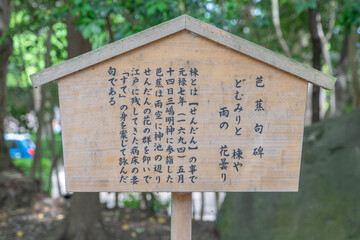 芭蕉句碑
どむみりと　棟や
雨の　花曇り
棟とは【せんだん】の事で
元禄七年（一六九四）五月
十四日三嶋明神に参詣した
芭蕉は雨空に神池の辺り
せんだんの花の群を仰いで
江戸に残してきた病床の妻
「すて」の身を案じて詠んだ
句である